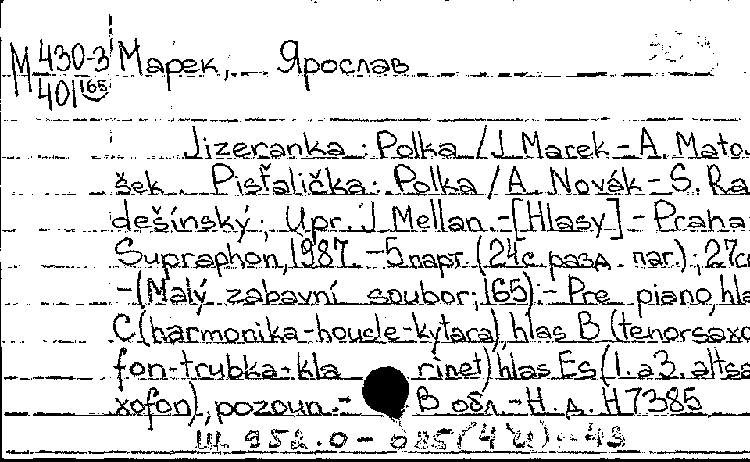 М 430-3 Марек, Ярослав
401 165
Jizeranka : Polka / J. Marek – A. Mato-
šek. Pisťalička : Polka / A. Novák – S. Ra
dešínský ; Upr. J. Mellan. – [Hlasy] – Praha
Supraphon, 1987. – 5 парт. (24 с. разд. паг.) ; 27 с
– (Malý zabavní soubor ; 165). – Pre piano, hla
C (harmonika-housle-kytara), hlas B (tenorsaxo
fon-trubka-kla rinet) hlas Es (1. a 3. altsa
xofon), pozoun. – В обл. – Н. д. H 7385
Ш 952.0 – 035(4Ч) – 43